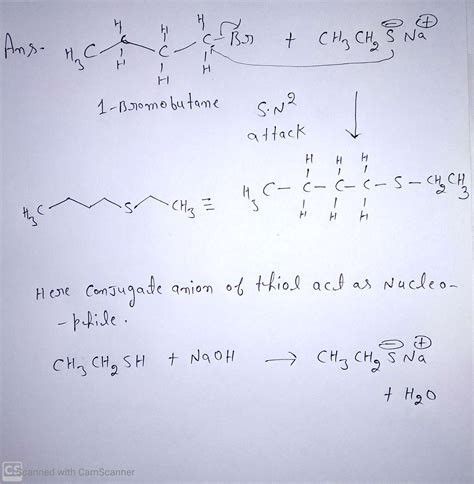 Ans- H₃C - C - C - C - Br + CH₃ CH₂ S⊖ Na⊕
H H H
H H H
1-Bromobutane
S.N²
attack
H H H
H₃C - C - C - C - C - S - CH₂ CH₃
H H H
H₃C S CH₃ ≡
Here Conjugate anion of thiol act as Nucleo-
-phile.
CH₃ CH₂ SH + NaOH → CH₃ CH₂ S⊖ Na⊕
+ H₂O
CS Scanned with CamScanner